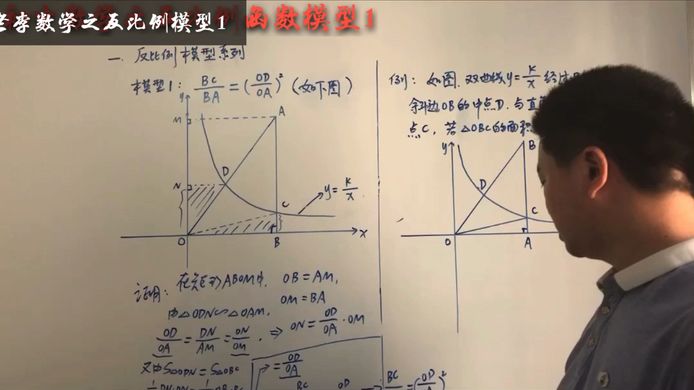 老李数学之反比例模型1
函数模型1
一、反比例模型系列
模型1: BC/BA=(OD/OA)² (如下图)
y M A
N D
C y=k/x
O B x
例: 如图,双曲线y=k/x经过
斜边OB的中点D,与直
点C,若△OBC的面积
y B
D
C
O A
证明: 在矩形ABOM中, OB=AM,
OM=BA
由△ODN∽△OAM,
OD/OA=DN/AM=ON/OM ⇒ ON=OD/OA·OM
又由S△ODN=S△OBC
=OD/OA
BC OD BC =(OD/OA)²